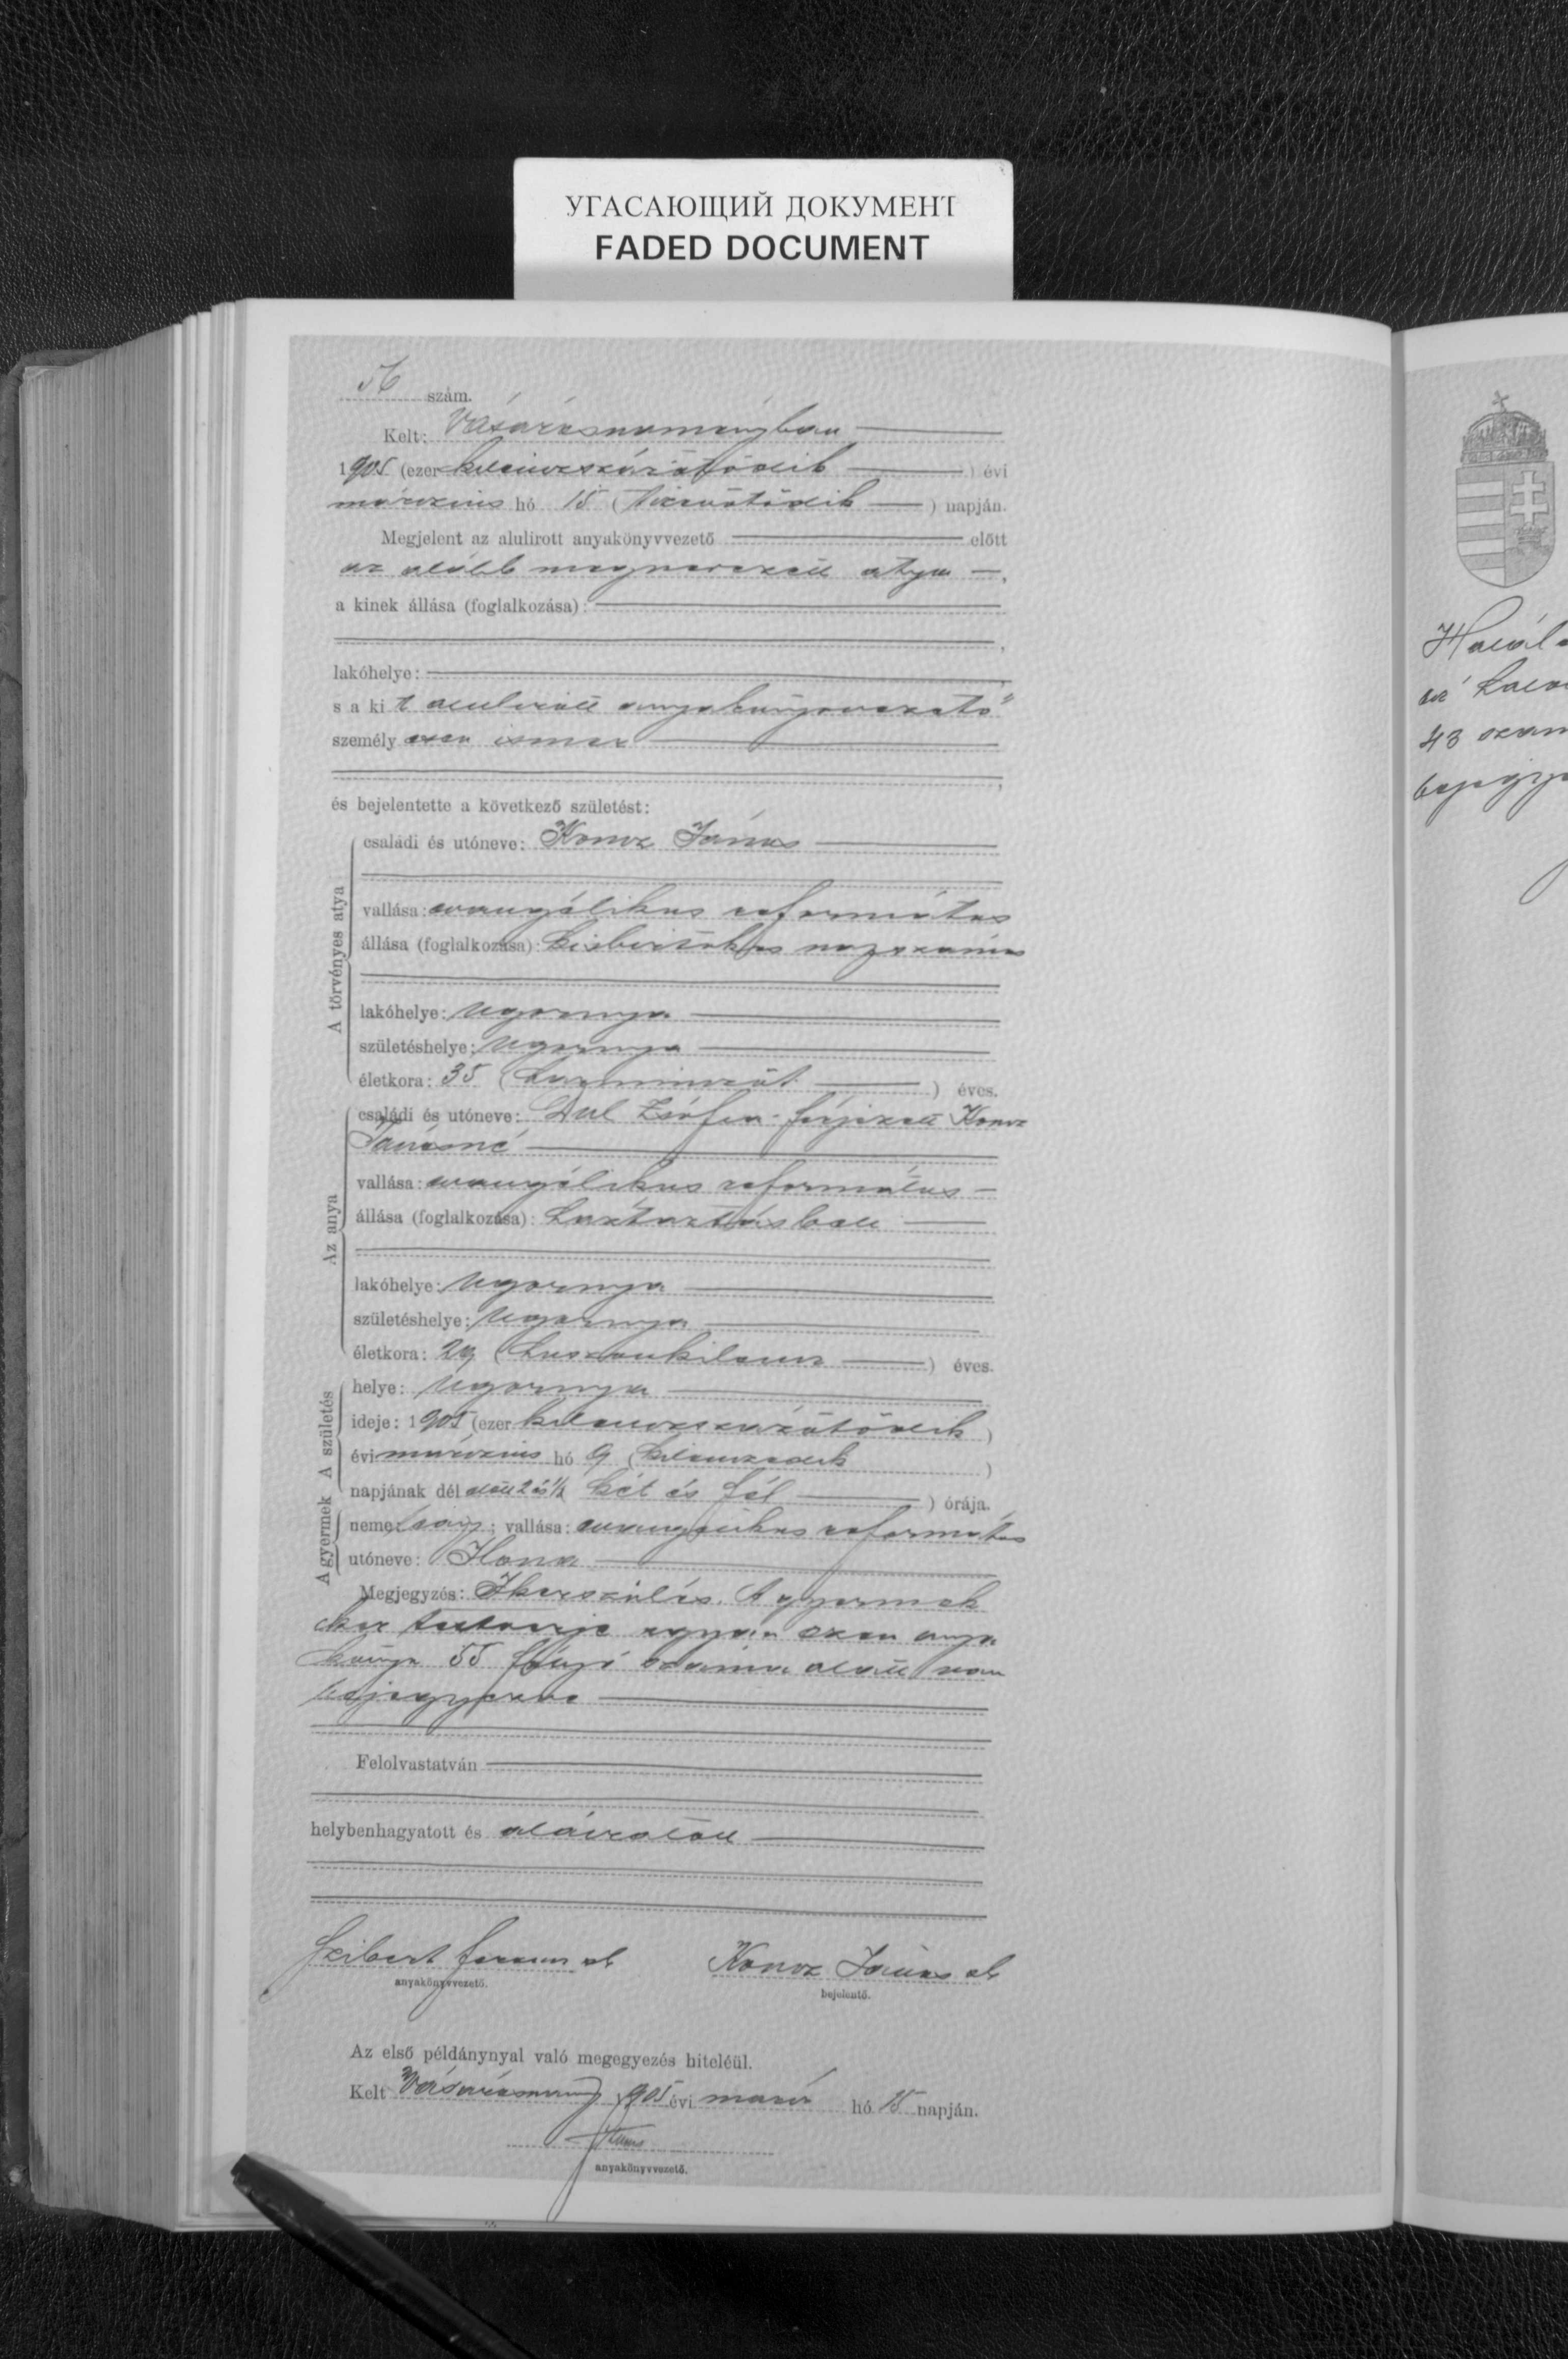 УГАСАЮЩИЙ ДОКУМЕНТ
FADED DOCUMENT
56 szám.
Kelt: Vásárosnaményban
1905 (ezer kilenczszázötödik) évi
márczius hó 15 (tizenötödik) napján.
Megjelent az alulirott anyakönyvvezető előtt
az alább megnevezett atya,
a kinek állása (foglalkozása):
lakóhelye:
s a kit alulirott anyakönyvvezető
személyesen ismer
és bejelentette a következő születést:
A törvényes atya
családi és utóneve: Koncz János
vallása: evangélikus református
állása (foglalkozása): kisbirtokos
lakóhelye: Ugornya
születéshelye: Ugornya
életkora: 35 (harminczöt) éves.
Az anya
családi és utóneve: Dul Zsófia férjezett Koncz
Jánosné
vallása: evangélikus református
állása (foglalkozása): háztartásbeli
lakóhelye: Ugornya
születéshelye: Ugornya
életkora: 29 (huszonkilencz) éves.
A születés
helye: Ugornya
ideje: 1905 (ezer kilenczszázötödik)
évi márczius hó 9 (kilenczedik)
napjának dél előtt 2 és ½ (két és fél) órája.
A gyermek
neme: leány; vallása: evangelikus református
utóneve: Ilona
Megjegyzés: Ikerszülés. A gyermek
iker testvérje ugyan ezen anya
könyv 55 folyó száma alatt van
bejegyezve
Felolvastatván
helybenhagyatott és aláiratott
Szibert Ferencz sk
anyakönyvvezető.
Koncz János sk
bejelentő.
Az első példánynyal való megegyezés hiteléül.
Kelt Vásárosnamény, 1905 évi márcz hó 15 napján.
anyakönyvvezető.
43 szám